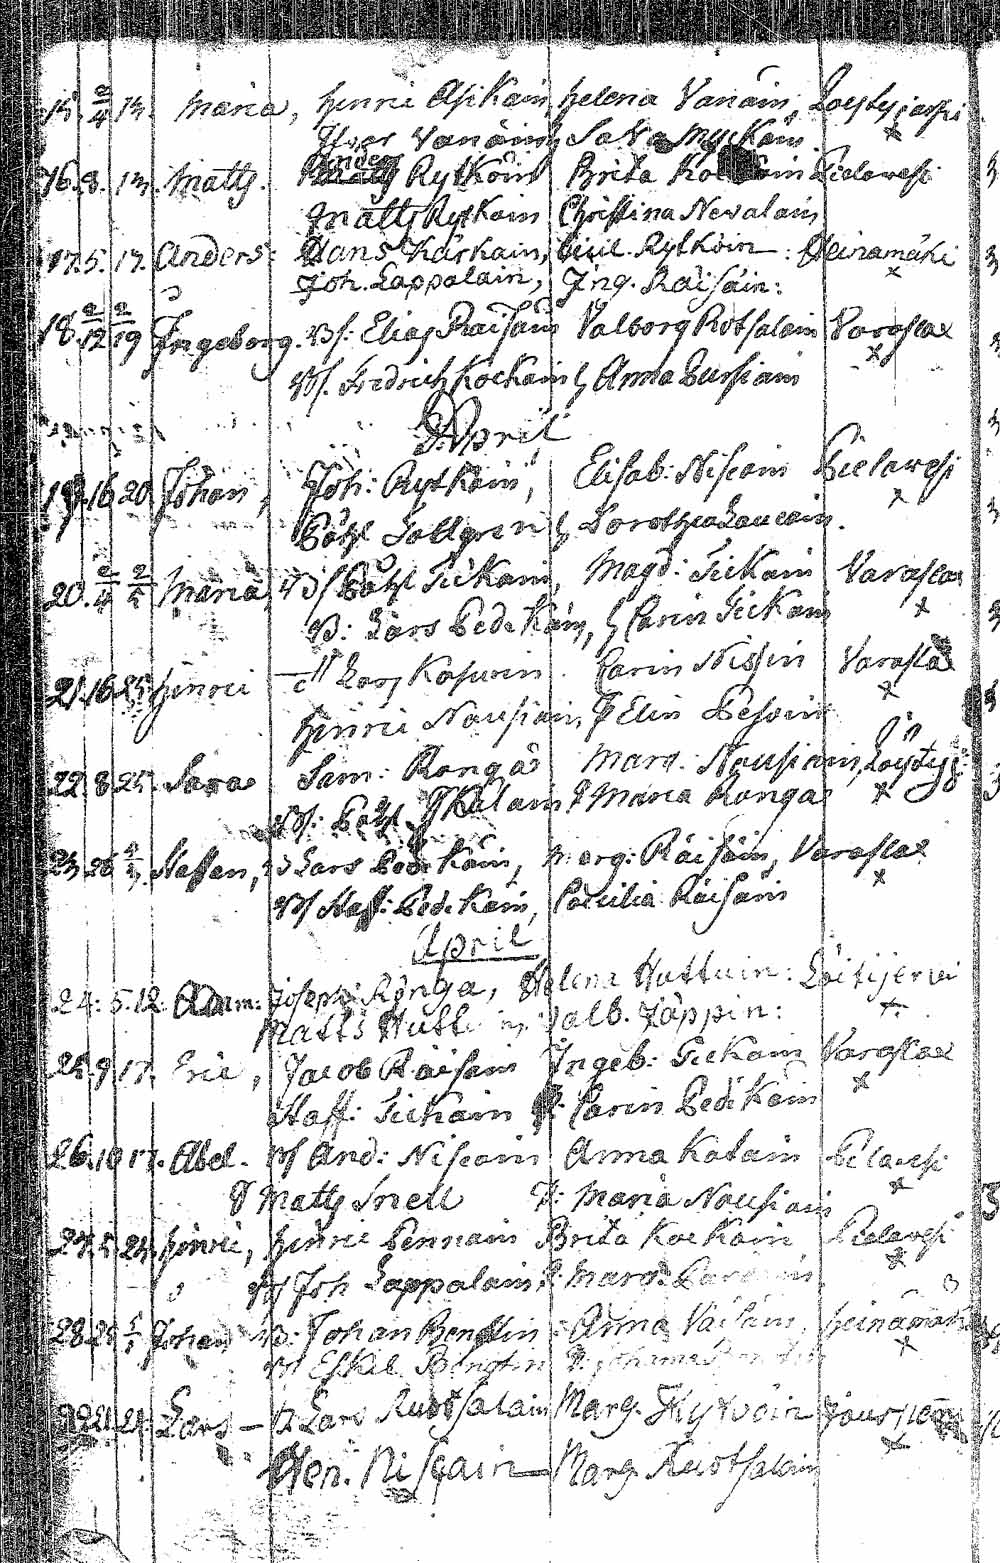 15. 2/4 13. Maria, Hinric Asikain, Helena Vanain, Löytyjerfvi
Ifver Vanäin, & Sara Myckäin
16. 8. 13. Matts. Anders Rytköin Brita Pielavesi
Matts Rytköin Christina Nevalain
17. 5. 17. Anders: Hans Kärkäin, Cicil. Rytköin: Heinämäki
Joh. Lappalain, Ing. Räisäin:
18. 2/12 2/19 Ingeborg. Bs: Elias Räisäin Valborg Rotsalain Varaslax
Bs. Fredrich Kockain & Anna Lussiain
April
19. 16 20. Johan, Joh: Rytköin, Elisab: Niscain Pielavesi
Påhl Tallgren & Dorothea Laucain.
20. 2/4 2/5 Maria, Bs Påhl Tickain, Magd: Tickain Varaslax
B: Lars Pedekäin, & Carin Tickain
21. 16 25 Hinric Lars Kosuvin Carin Nissin Varaslax
Hinric Nousiain, P Elin Pesoin
22. 8. 25. Sara Sam: Ronga Marg: Nousiain, Löytyj:
Bs: Påhl & Maria Ronga
23 26 Staffan, B Lars Pedekäin, Marg: Räisäin, Varaslax
Bs Staff: Pedekäin, Cæcilia Räisäin
April
24: 5. 12. Adam: Joseph Rönga, Helena Huttuin: Löitijervi
Matts Huttuin, Valb. Jäppin:
25. 9 17. Eric, Jacob Räisäin Ingeb: Tickain Varaslax
Staff: Tickain P: Carin Pedekäin
26. 10 17. Abel. Bs And: Niscain Anna Katain Pielavesi
Matts Snell P: Maria Nousiain
27. 5. 25. Hinric, Hinric Pennain Brita Kockain Pielavesi
Bs Joh Lappalain P: Marg:
28. 25 Johan B: Johan Bengtin Anna Väisäin, Heinämäki
Bs Eskil Bengtin P: Johanna
29. 21. 25. Lars — B Lars Ruotsalain Marg. Hyvöin
Hen. Niscain — Marg. Ruotsalain